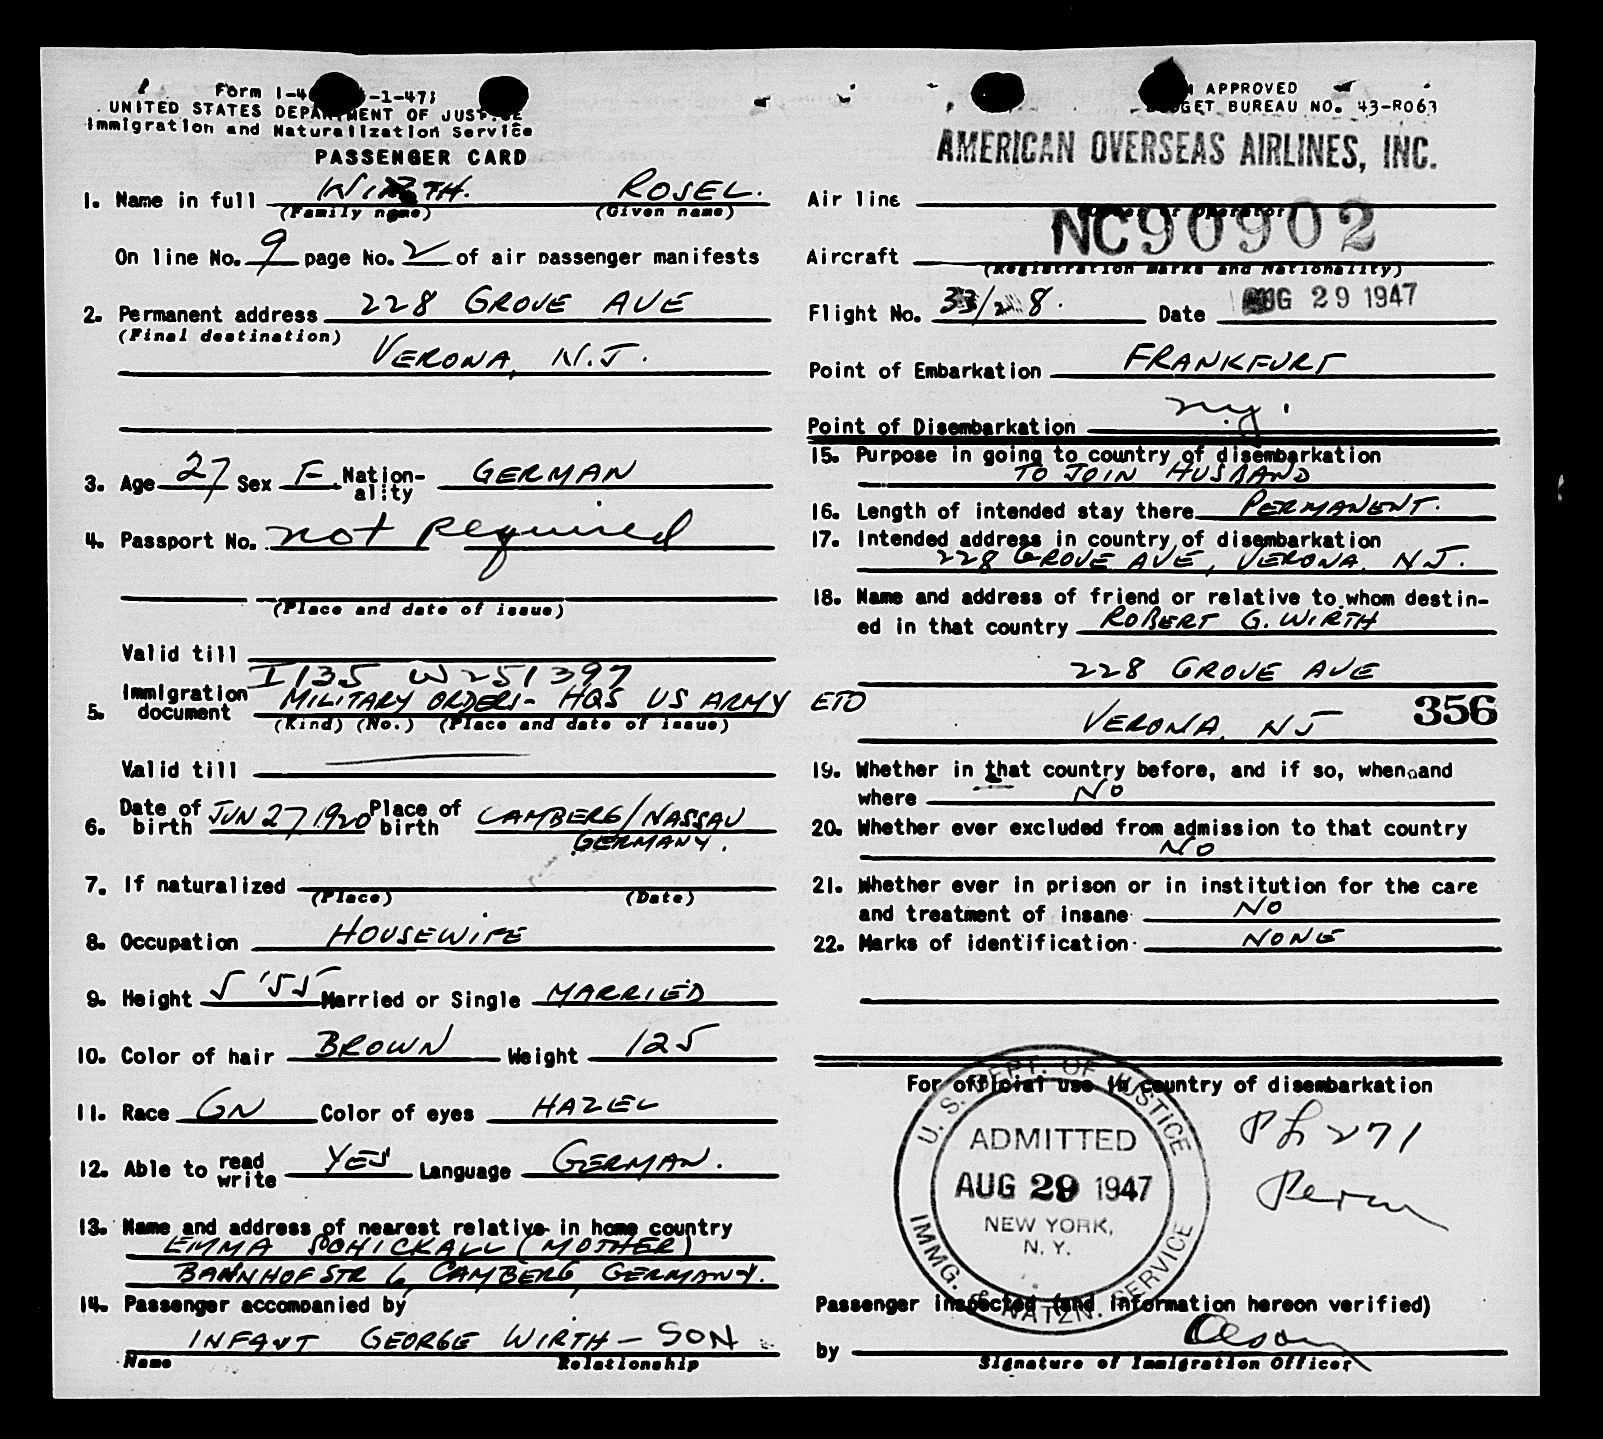 Form I-4 -1-47)
UNITED STATES DEPARTMENT OF JUSTICE
Immigration and Naturalization Service
PASSENGER CARD
1. Name in full WIRTH. ROSEL.
(Family name) (Given name)
On line No. 9 page No. 2 of air passenger manifests
2. Permanent address 228 GROVE AVE
(Final destination)
VERONA, N.J.
3. Age 27 Sex F. Nation-ality GERMAN
4. Passport No. not required
(Place and date of issue)
Valid till
I 135 W251397
5. Immigration document MILITARY ORDERS - HQS US ARMY ETO
(Kind) (No.) (Place and date of issue)
Valid till
6. Date of birth JUN 27 1920 Place of birth CAMBERG/NASSAU
GERMANY.
7. If naturalized
(Place) (Date)
8. Occupation HOUSEWIFE
9. Height 5'55 Married or Single MARRIED
10. Color of hair BROWN Weight 125
11. Race GN Color of eyes HAZEL
12. Able to read write YES Language GERMAN.
13. Name and address of nearest relative in home country
EMMA SCHICKALL (MOTHER)
BAHNHOFSTR 6, CAMBERG, GERMANY.
14. Passenger accompanied by
INFANT GEORGE WIRTH - SON
Name Relationship
APPROVED
BUDGET BUREAU NO. 43-R063
AMERICAN OVERSEAS AIRLINES, INC.
Air line
(Owner or Operator)
NC90902
Aircraft
(Registration marks and Nationality)
Flight No. 33/ 8. Date AUG 29 1947
Point of Embarkation FRANKFURT
Point of Disembarkation n.y.
15. Purpose in going to country of disembarkation
TO JOIN HUSBAND
16. Length of intended stay there PERMANENT.
17. Intended address in country of disembarkation
228 GROVE AVE, VERONA. N.J.
18. Name and address of friend or relative to whom destin-
ed in that country ROBERT G. WIRTH
228 GROVE AVE
356
VERONA, NJ
19. Whether in that country before, and if so, when and
where NO
20. Whether ever excluded from admission to that country
NO
21. Whether ever in prison or in institution for the care
and treatment of insane NO
22. Marks of identification NONE
For official use in country of disembarkation
U. S. DEPT. OF JUSTICE
ADMITTED
AUG 29 1947
NEW YORK,
N. Y.
IMMG. & NATZN. SERVICE
PL 271
Perm
Passenger inspected (and information hereon verified)
by Olson
Signature of Immigration Officer